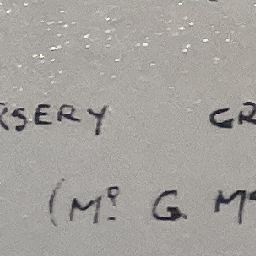 RSERY GR
(Mr. G. Mc